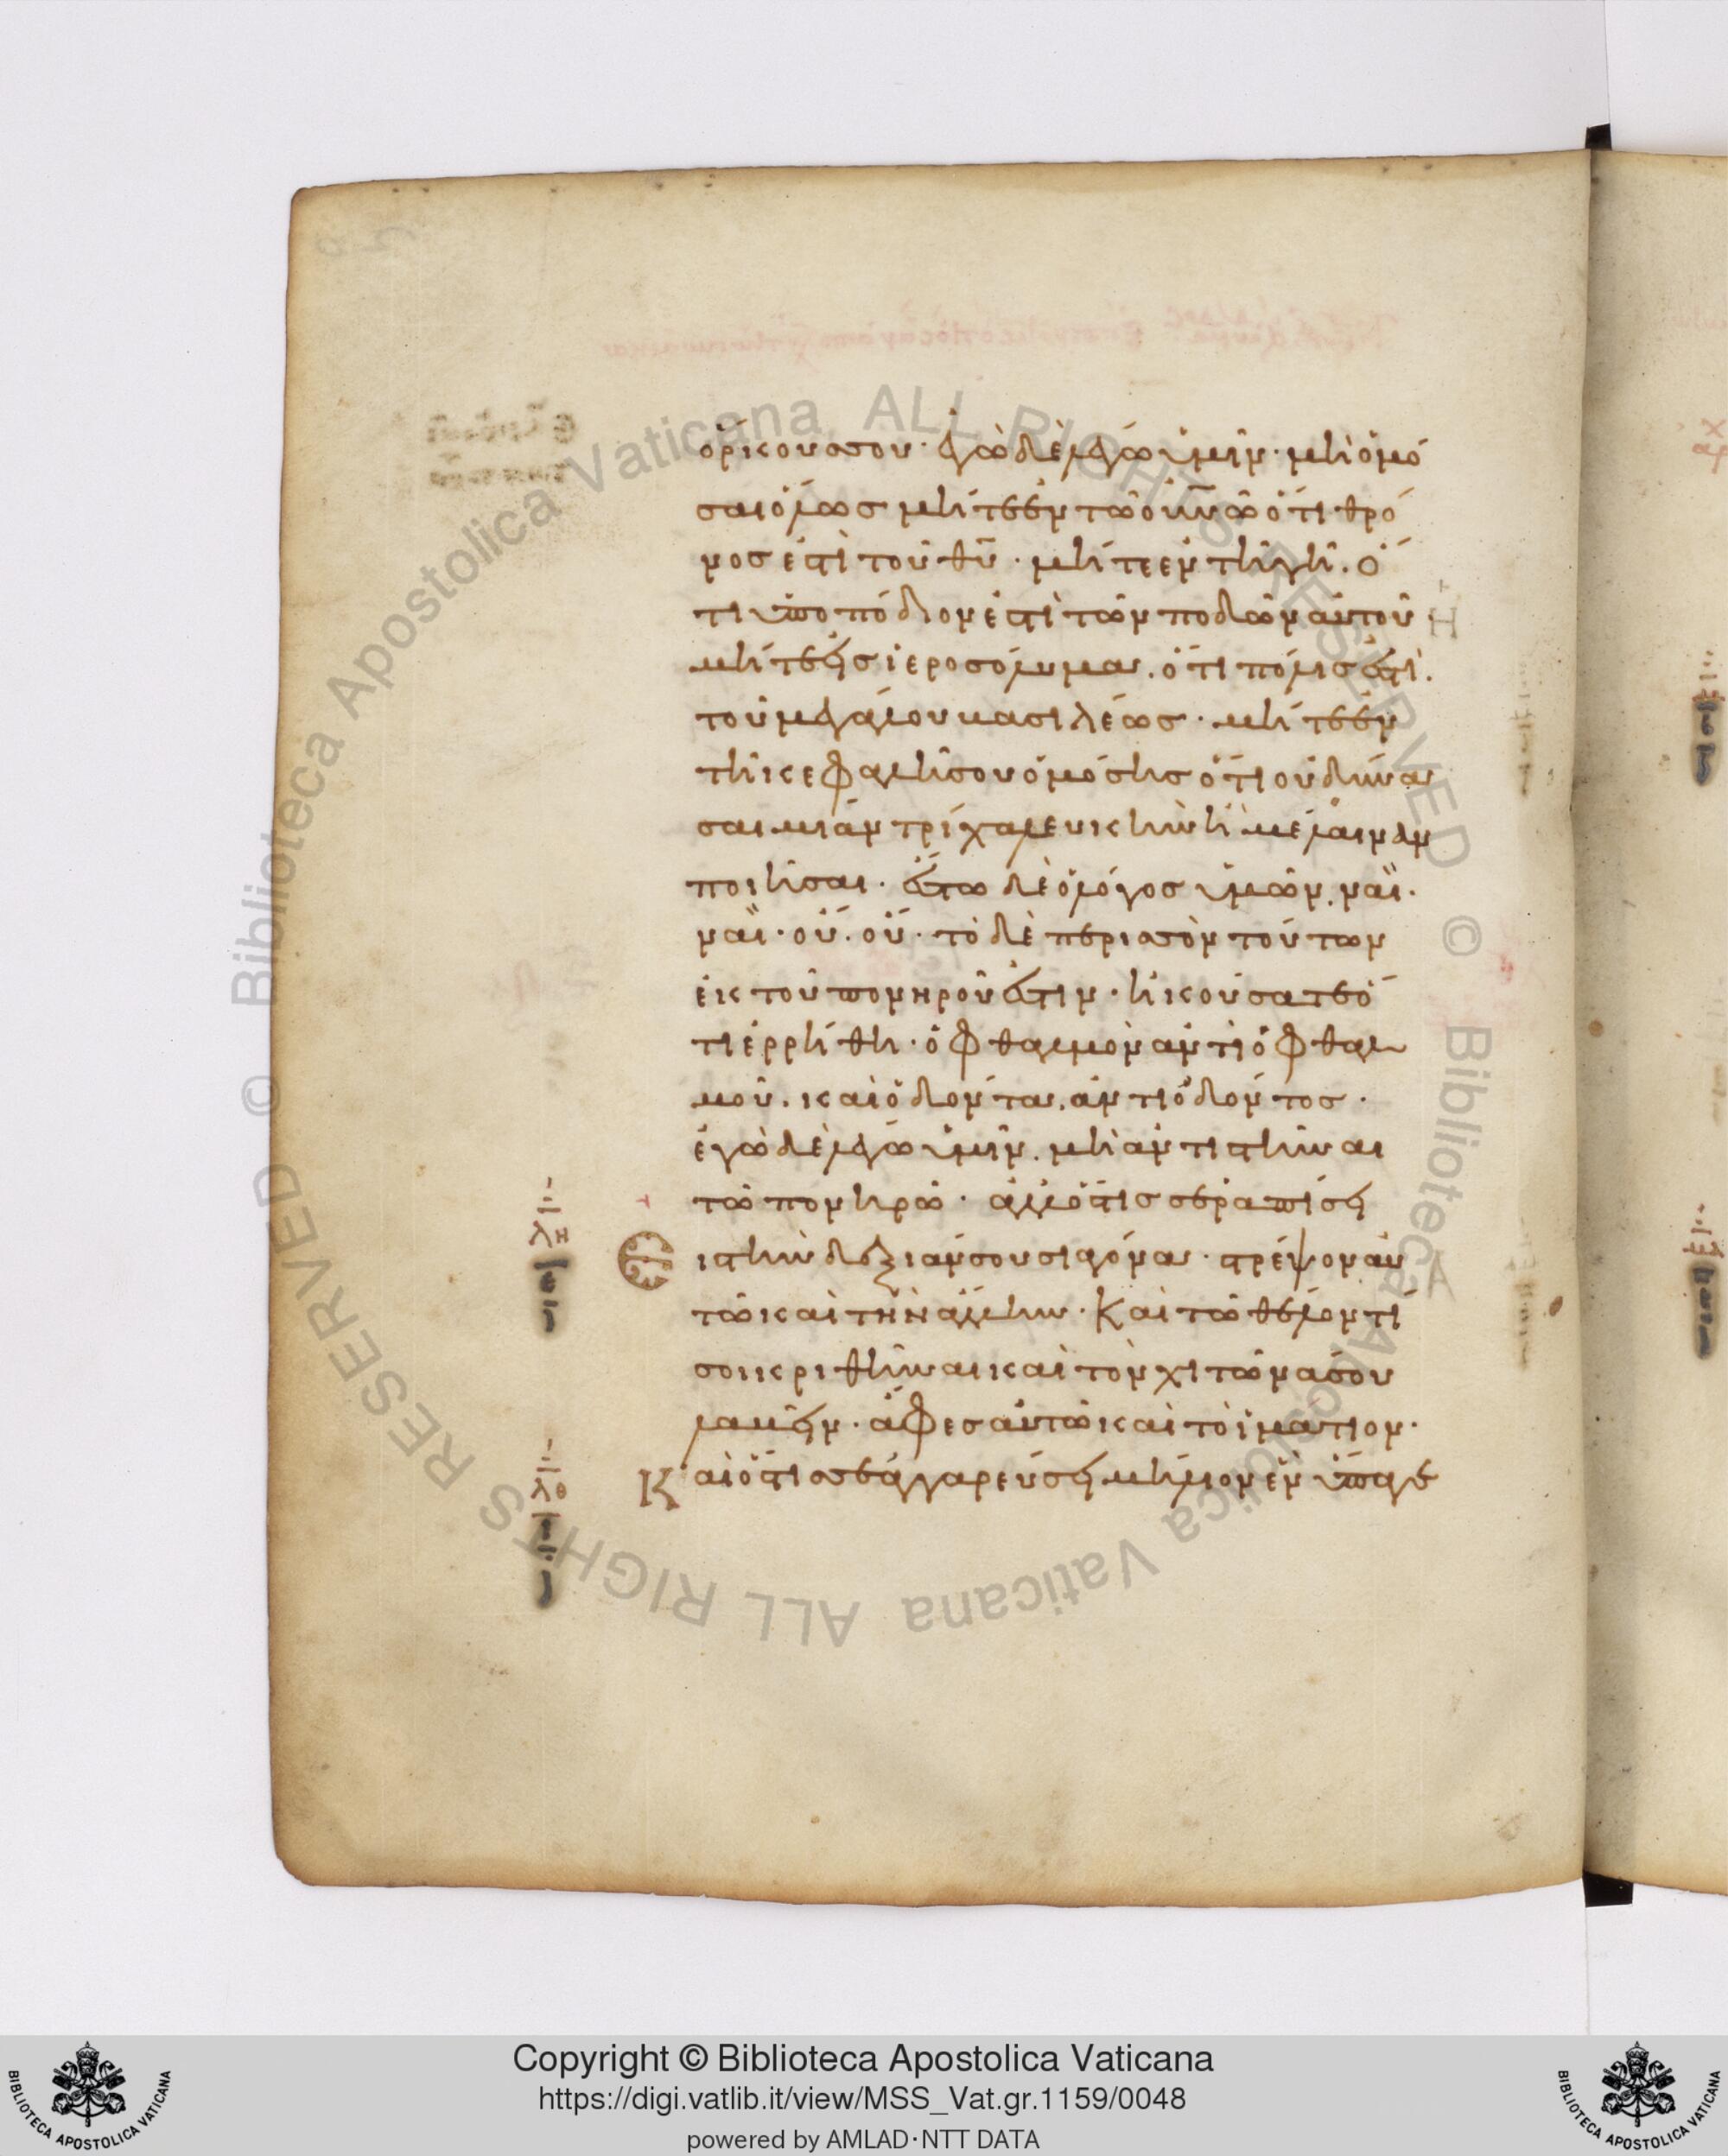 ὁρκουσσου· ἐγὼ δὲ λέγω ὑμῖν· μὴ ὀμό
σαι ὅλως μήτε ἐν τῶ οὐνῶ ὅτι θρό
νος ἐστὶ τοῦ θυ· μήτε ἐν τῆ γῆ. ὅ
τι ὑποπόδιον ἐστὶ τῶν ποδῶν αὐτοῦ
μήτε εἰς ἱεροσόλυμα. ὅτι πόλις ἐστὶ.
τοῦ μεγάλου βασιλέως· μήτε ἐν
τῆ κεφαλῆ σου ὀμόσης ὅτι οὐ δύνα
σαι μίαν τρίχα λευκὴν ἢ μέλαιναν
ποιῆσαι. ἔστω δὲ ὁ λόγος ὑμῶν. ναῒ.
ναῒ· οὔ. οὔ· τὸ δὲ περισσὸν τούτων
ἐκ τοῦ πονηροῦ ἐστιν. ἠκούσατε ὅ
τι ἐρρήθη· ὀφθαλμὸν ἀντὶ ὀφθαλ
μοῦ. καὶ ὀδόντα. ἀντὶ ὀδόντος.
ἐγὼ δὲ λέγω ὑμῖν. μὴ ἀντιστῆναι
τῶ πονηρῶ· ἀλλ' ὅστις σε ῥαπίσει
λη
ἐπὶ τὴν δεξιάν σου σιαγόνα· στρέψον αὐ
τῶ καὶ τὴν ἄλλην· Καὶ τῶ θέλοντί
σοι κριθῆναι καὶ τὸν χιτῶνα σου
λαβεῖν· ἄφες αὐτῶ καὶ τὸ ἱμάτιον·
λθ
Καὶ ὅστις σε ἀγγαρεύσει μήλιον ἓν ὕπαγε
Copyright © Biblioteca Apostolica Vaticana
https://digi.vatlib.it/view/MSS_Vat.gr.1159/0048
powered by AMLAD·NTT DATA
BIBLIOTECA APOSTOLICA VATICANA
BIBLIOTECA APOSTOLICA VATICANA
© Biblioteca Apostolica Vaticana ALL RIGHTS RESERVED © Biblioteca Apostolica Vaticana ALL RIGHTS RESERVED